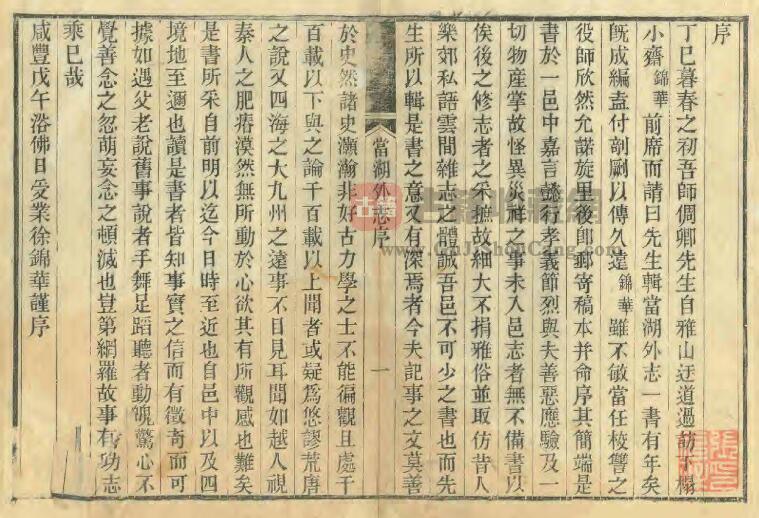 序
丁巳暮春之初吾師倜卿先生自雅山迂道過訪下榻
小齋錦華前席而請曰先生輯當湖外志一書有年矣
既成編盍付剞劂以傳久遠錦華雖不敏當任校讐之
役師欣然允諾旋里後卽郵寄稿本并命序其簡端是
書於一邑中嘉言懿行孝義節烈與夫善惡應驗及一
切物產掌故怪異災祥之事未入邑志者無不備書以
俟後之修志者之采摭故細大不捐雅俗並取仿昔人
樂郊私語雲間雜志之體誠吾邑不可少之書也而先
生所以輯是書之意又有深焉者今夫記事之文莫善
當湖外志序
一
於史然諸史灝瀚非好古力學之士不能徧觀且處千
百載以下與之論千百載以上聞者或疑爲悠謬荒唐
之說又四海之大九州之遠事不目見耳聞如越人視
秦人之肥瘠漠然無所動於心欲其有所觀感也難矣
是書所采自前明以迄今日時至近也自邑中以及四
境地至邇也讀是書者皆知事實之信而有徵奇而可
據如遇父老說舊事說者手舞足蹈聽者動魄驚心不
覺善念之忽萌妄念之頓滅也豈第網羅故事有功志
乘已哉
咸豐戊午浴佛日受業徐錦華謹序
古籍
www.GuJiShouCang.com